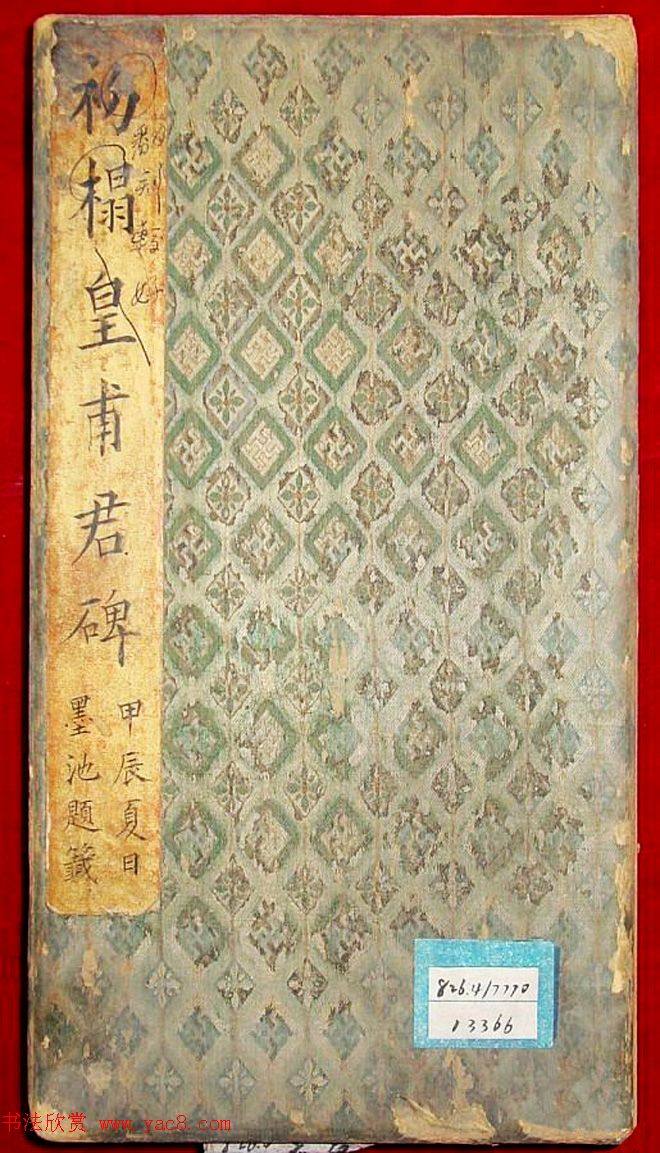 初榻皇甫君碑
甲辰夏日
墨池题籤
826.4/7770
13366
书法欣赏 www.yac8.com